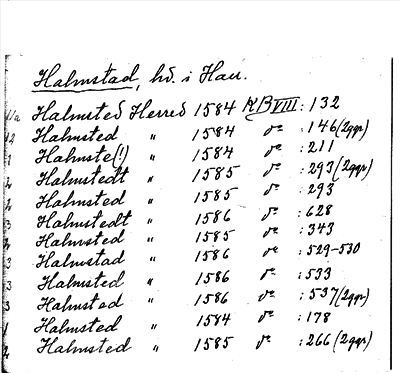 Halmstad, hd. i Hall.
1/2 Halmsted Herred 1584 KB VIII : 132
12 Halmsted " 1584 do : 146 (2ggr)
1 Halmste(!) " 1584 do : 211
2 Halmstedt " 1585 do : 293 (2ggr)
2 Halmsted " 1585 do : 293
3 Halmstedt " 1586 do : 628
2 Halmsted " 1585 do : 343
3 Halmstad " 1586 do : 529-530
3 Halmsted " 1586 do : 533
3 Halmsted " 1586 do : 537 (2ggr)
1 Halmsted " 1584 do : 178
2 Halmsted " 1585 do : 266 (2ggr)